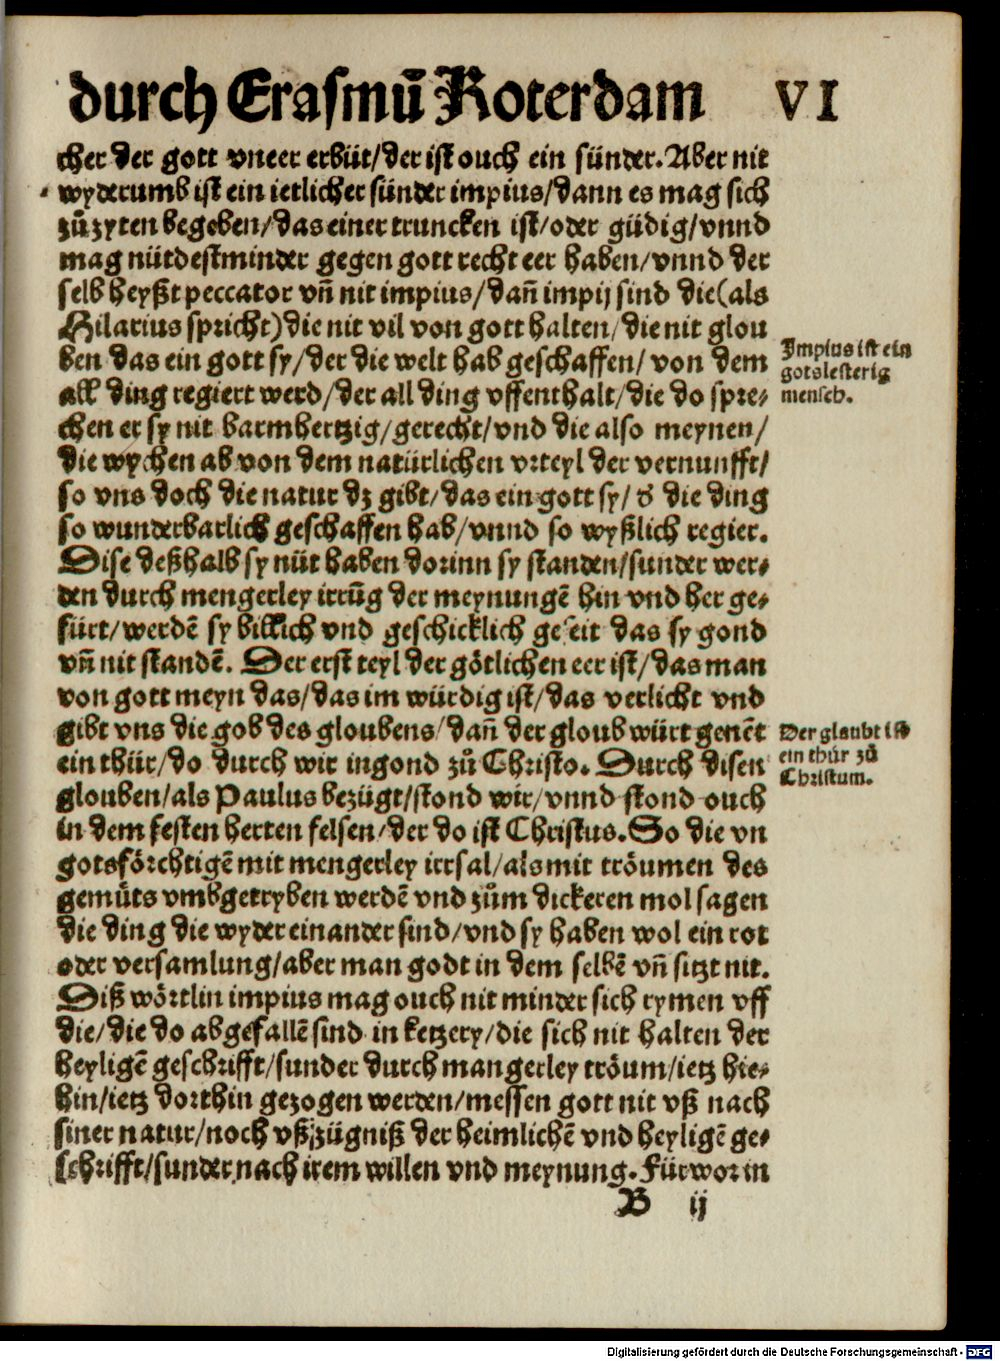 durch Erasmū Roterdam VI
cher der gott vneer erbüt/der ist ouch ein sünder. Aber nit
wyderumb ist ein ietlicher sünder impius/dann es mag sich
zů zyten begeben/das einer truncken ist/oder güdig/vnnd
mag nüt destminder gegen gott recht eer haben/vnnd der
selb heyßt peccator vñ nit impius/dañ impij sind die (als
Hilarius spricht) die nit vil von gott halten/die nit glou
ben das ein gott sy/der die welt hab geschaffen/von dem
all ding regiert werd/der all ding vffenthalt/die do spre-
chen er sy nit barmhertzig/gerecht/vnd die also meynen/
die wychen ab von dem natürlichen vrteyl der vernunfft/
so vns doch die natur dz gibt/das ein gott sy/d' die ding
so wunderbarlich geschaffen hab/vnnd so wyßlich regier.
Dise deßhalb sy nüt haben dorinn sy standen/sunder wer-
den durch mengerley irrūg der meynungē hin vnd her ge-
fürt/werdē sy billich vnd geschicklich geseit das sy gond
vñ nit standē. Der erst teyl der götlichen eer ist/das man
von gott meyn das/das im würdig ist/das verlicht vnd
gibt vns die gob des gloubens/dañ der gloub würt genēt
ein thür/do durch wir ingond zů Christo. Durch disen
glouben/als Paulus bezügt/stond wir/vnnd stond ouch
in dem festen herten felsen/der do ist Christus. So die vn
gotsförchtigē mit mengerley irrsal/als mit tröumen des
gemůts vmbgetryben werdē vnd zům dickeren mol sagen
die ding die wyder einander sind/vnd sy haben wol ein rot
oder versamlung/aber man godt in dem selbē vñ sitzt nit.
Diß wörtlin impius mag ouch nit minder sich rymen vff
die/die do abgefallē sind in ketzery/die sich nit halten der
heyligē geschrifft/sunder durch mangerley tröum/ietz hie-
hin/ietz dorthin gezogen werden/messen gott nit vß nach
siner natur/noch vß zügniß der heimlichē vnd heyligē ge-
schrifft/sunder nach irem willen vnd meynung. Fürwor in
B ij
Impius ist ein
gotslesterig
mensch.
Der glaubt ist
ein thür zů
Christum.
Digitalisierung gefördert durch die Deutsche Forschungsgemeinschaft - DFG